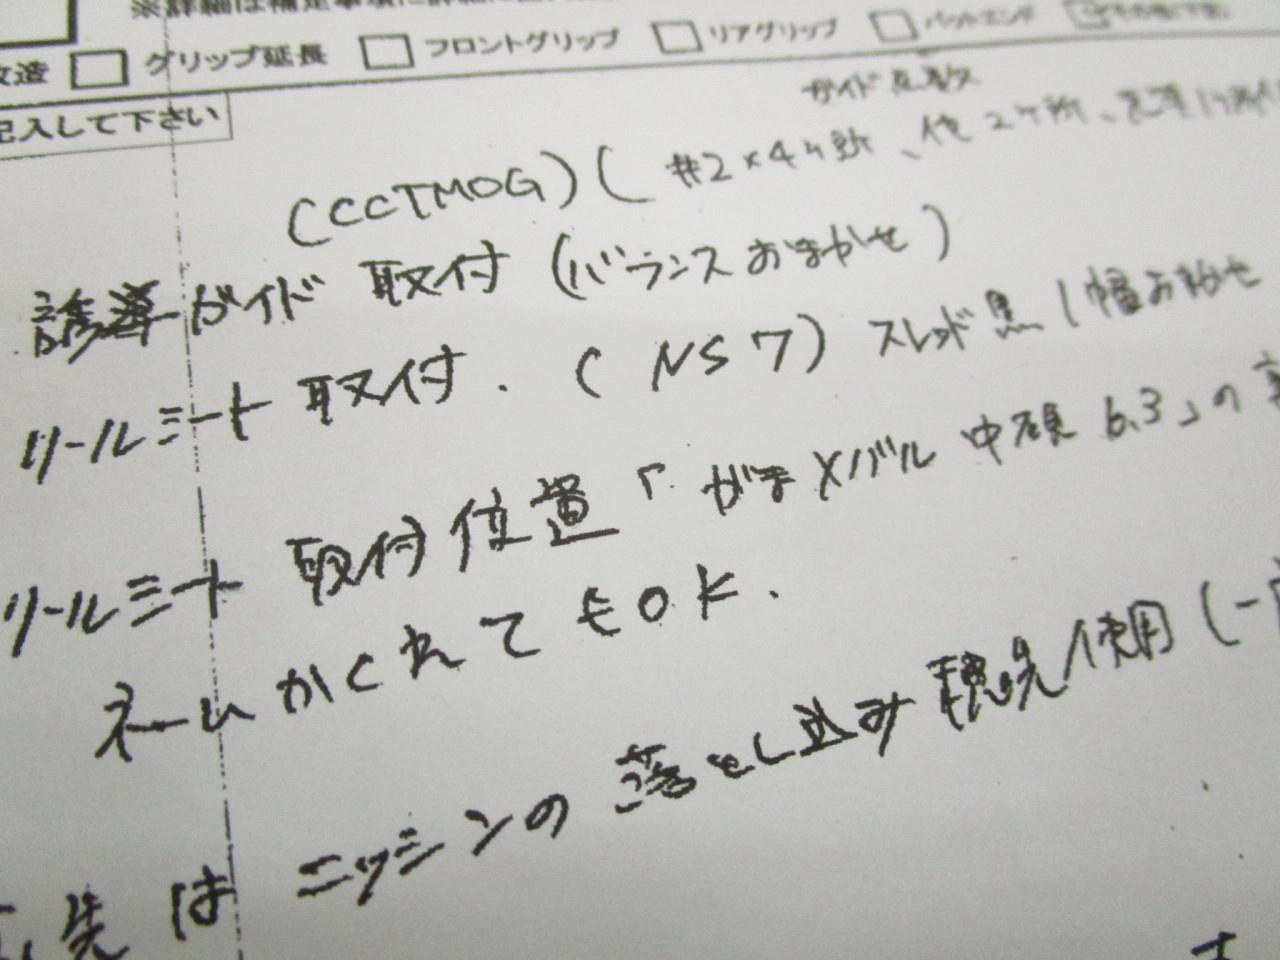 ※詳細は補足事項に詳細に
改造 □ グリップ延長 □ フロントグリップ □ リアグリップ □ バットエンド
記入して下さい
ガイド点数
(CCCTMOG) ( #2×4ヶ所、他2ヶ所、
誘導ガイド 取付 (バランスおまかせ)
リールシート 取付. ( NS7) スレッド黒 / 幅お任せ
リールシート 取付位置 「がまメバル 中硬 6.3」の
ネームかくれてもOK.
先は ニッシンの 落とし込み 穂先使用 (一